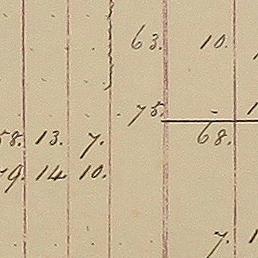 63. 10.
75. -
58. 13. 7. 68.
79. 14 10.
7.